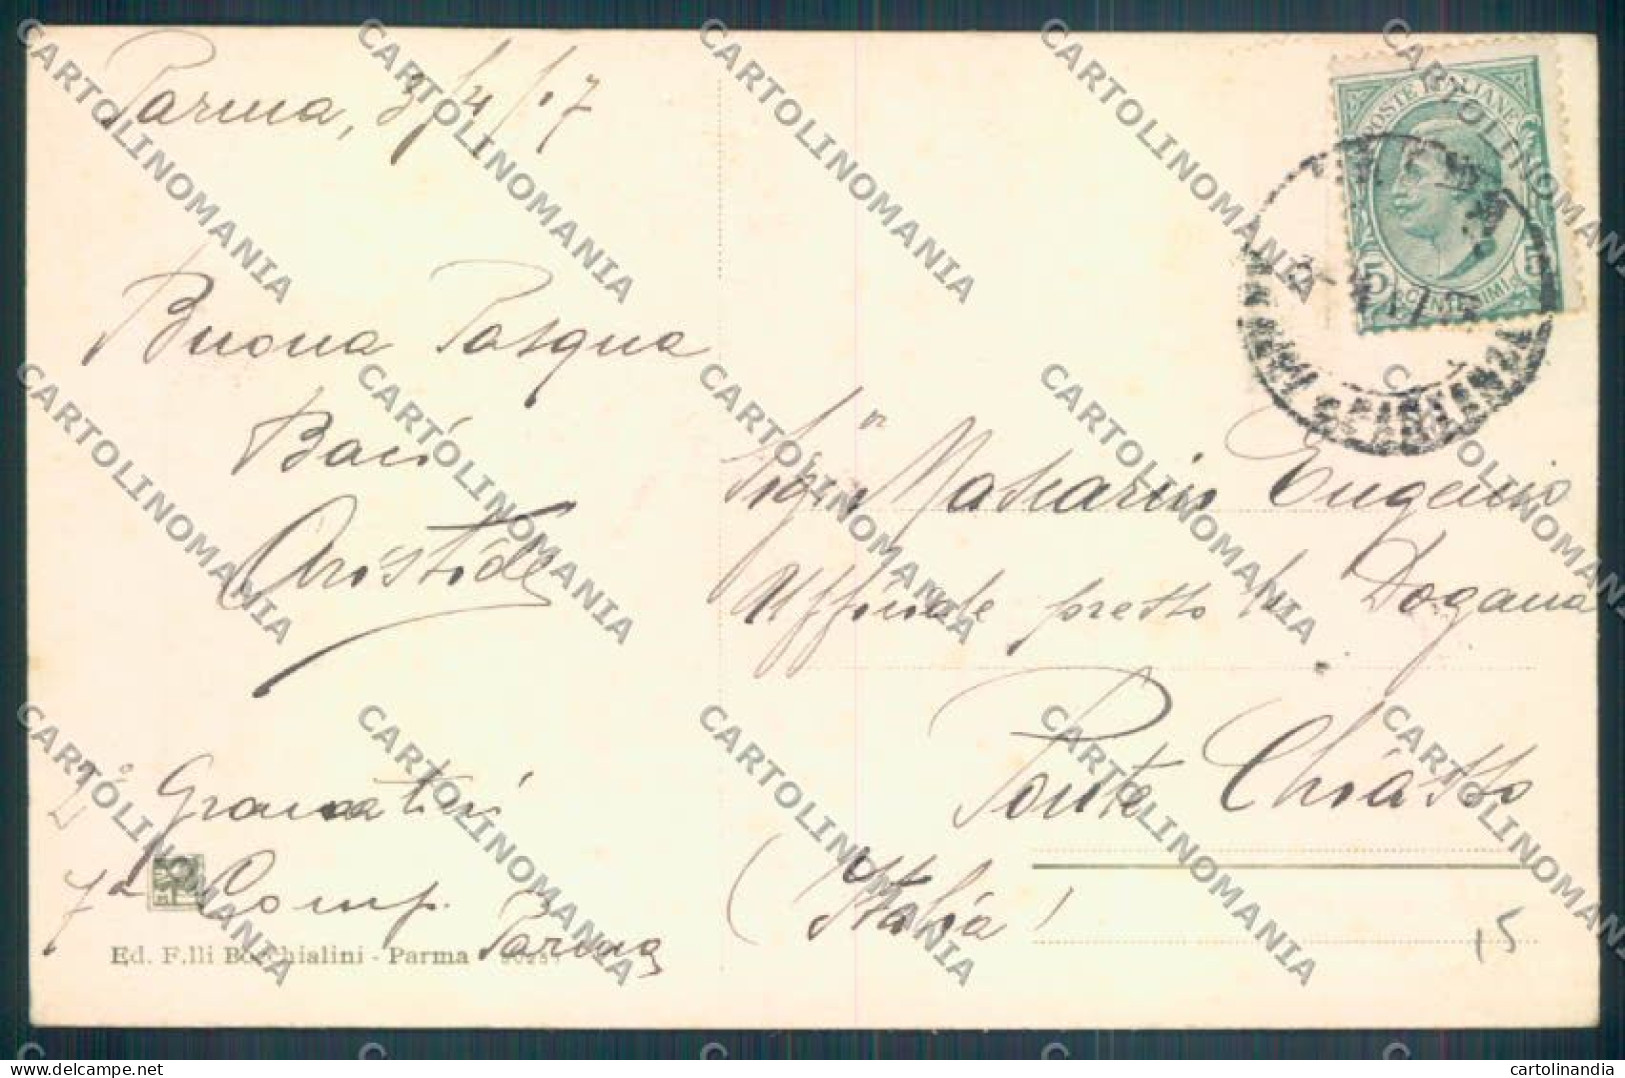 Parma, 3/4/17
Buona Pasqua
Baci
Aristide
2° Granatieri
7a Comp. Parma
Ed. F.lli Bocchialini - Parma
POSTE ITALIANE
5 CENTESIMI 5
PARTENZA
Sigr Eugenio
Ufficiale presso la Dogana
Ponte Chiasso
(Italia)
15
CARTOLINOMANIA
cartolinandia